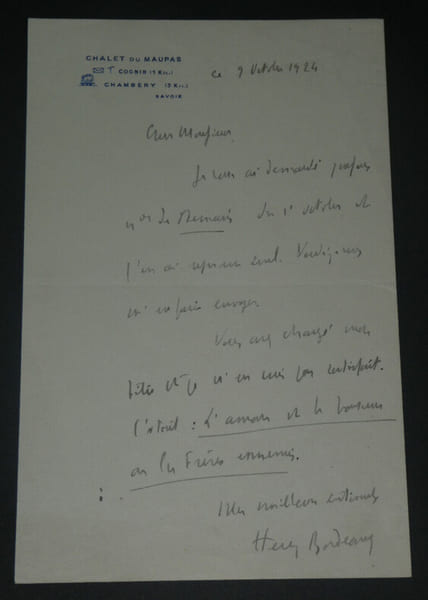 CHALET DU MAUPAS
COGNIN (1 KIL.)
CHAMBÉRY (3 KIL.)
SAVOIE
ce 9 Octobre 1924
Cher Monsieur,
Je vous ai demandé quelques
nos de Demain du 1er octobre et
j'en ai reçu un seul. Voudriez-vous
m'en faire envoyer.
Vous avez changé mon
titre et je n'en suis pas satisfait.
C'était : L'amour et le bonheur
ou les Frères ennemis.
Mes meilleurs sentiments
Henry Bordeaux